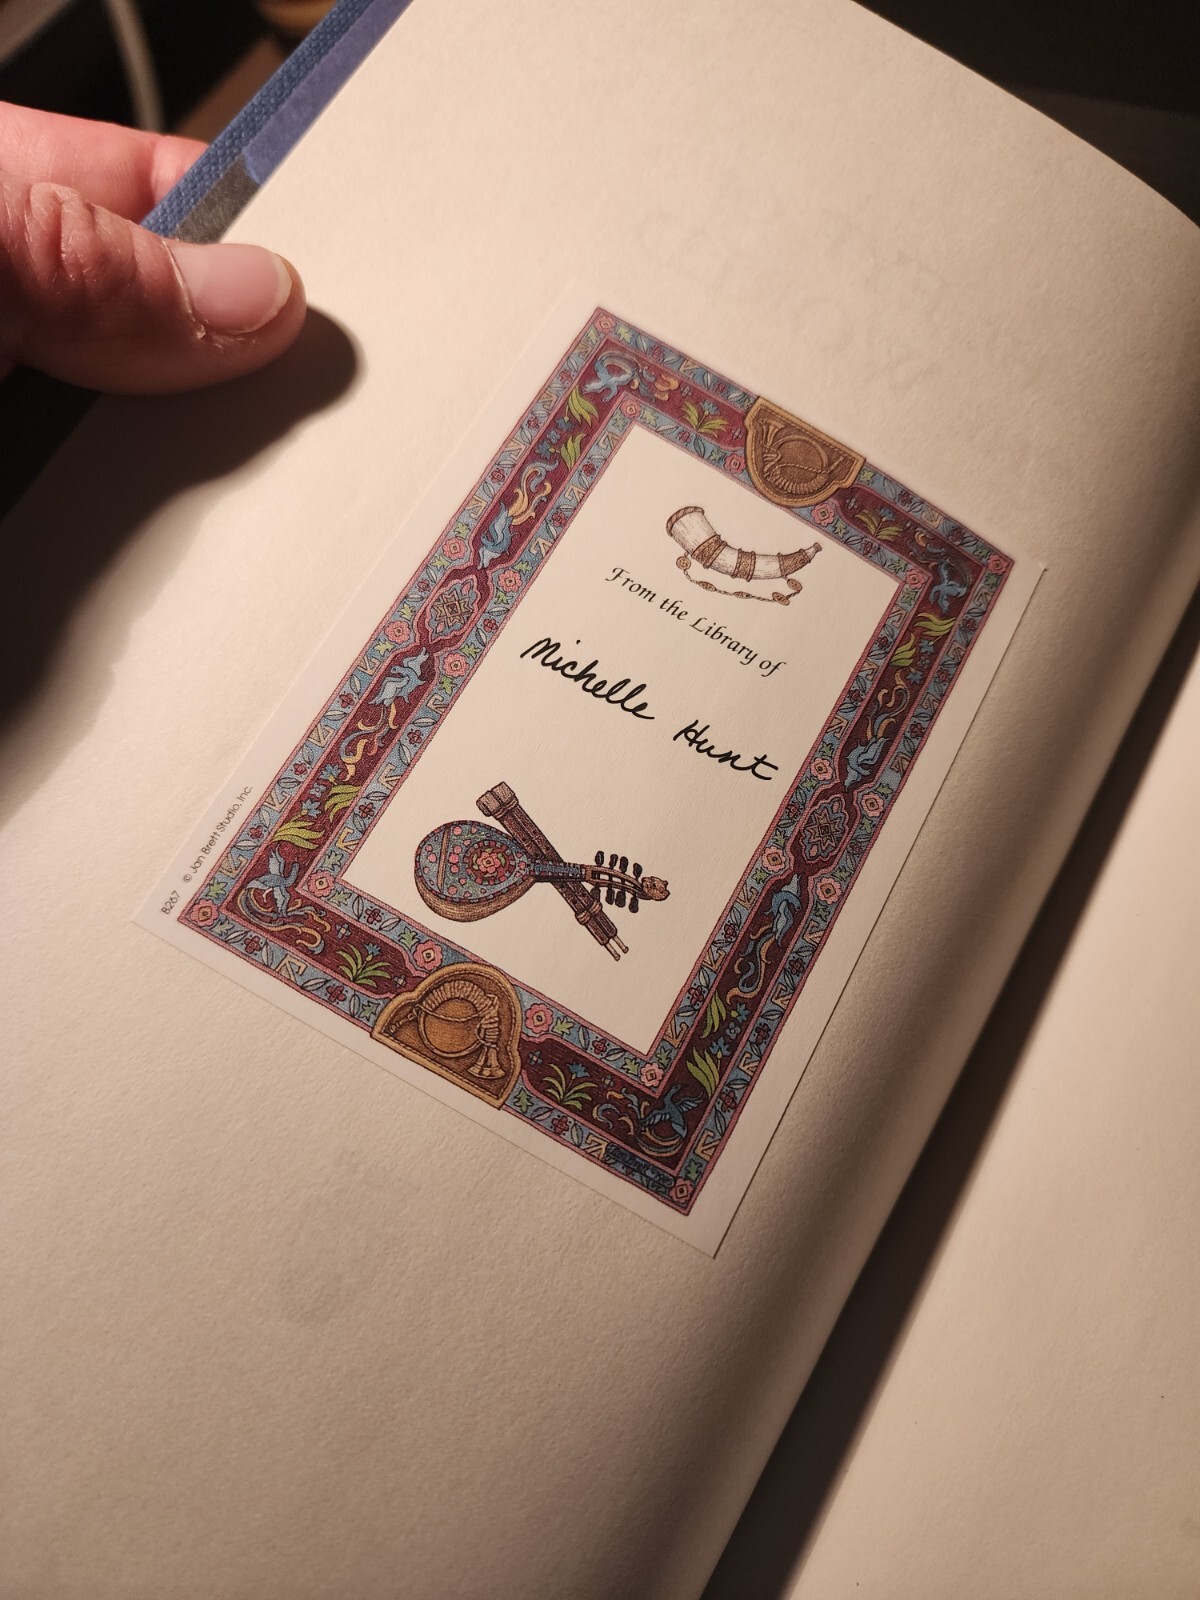 From the Library of
Michelle Hunt
B267 © Jan Brett Studio, Inc.